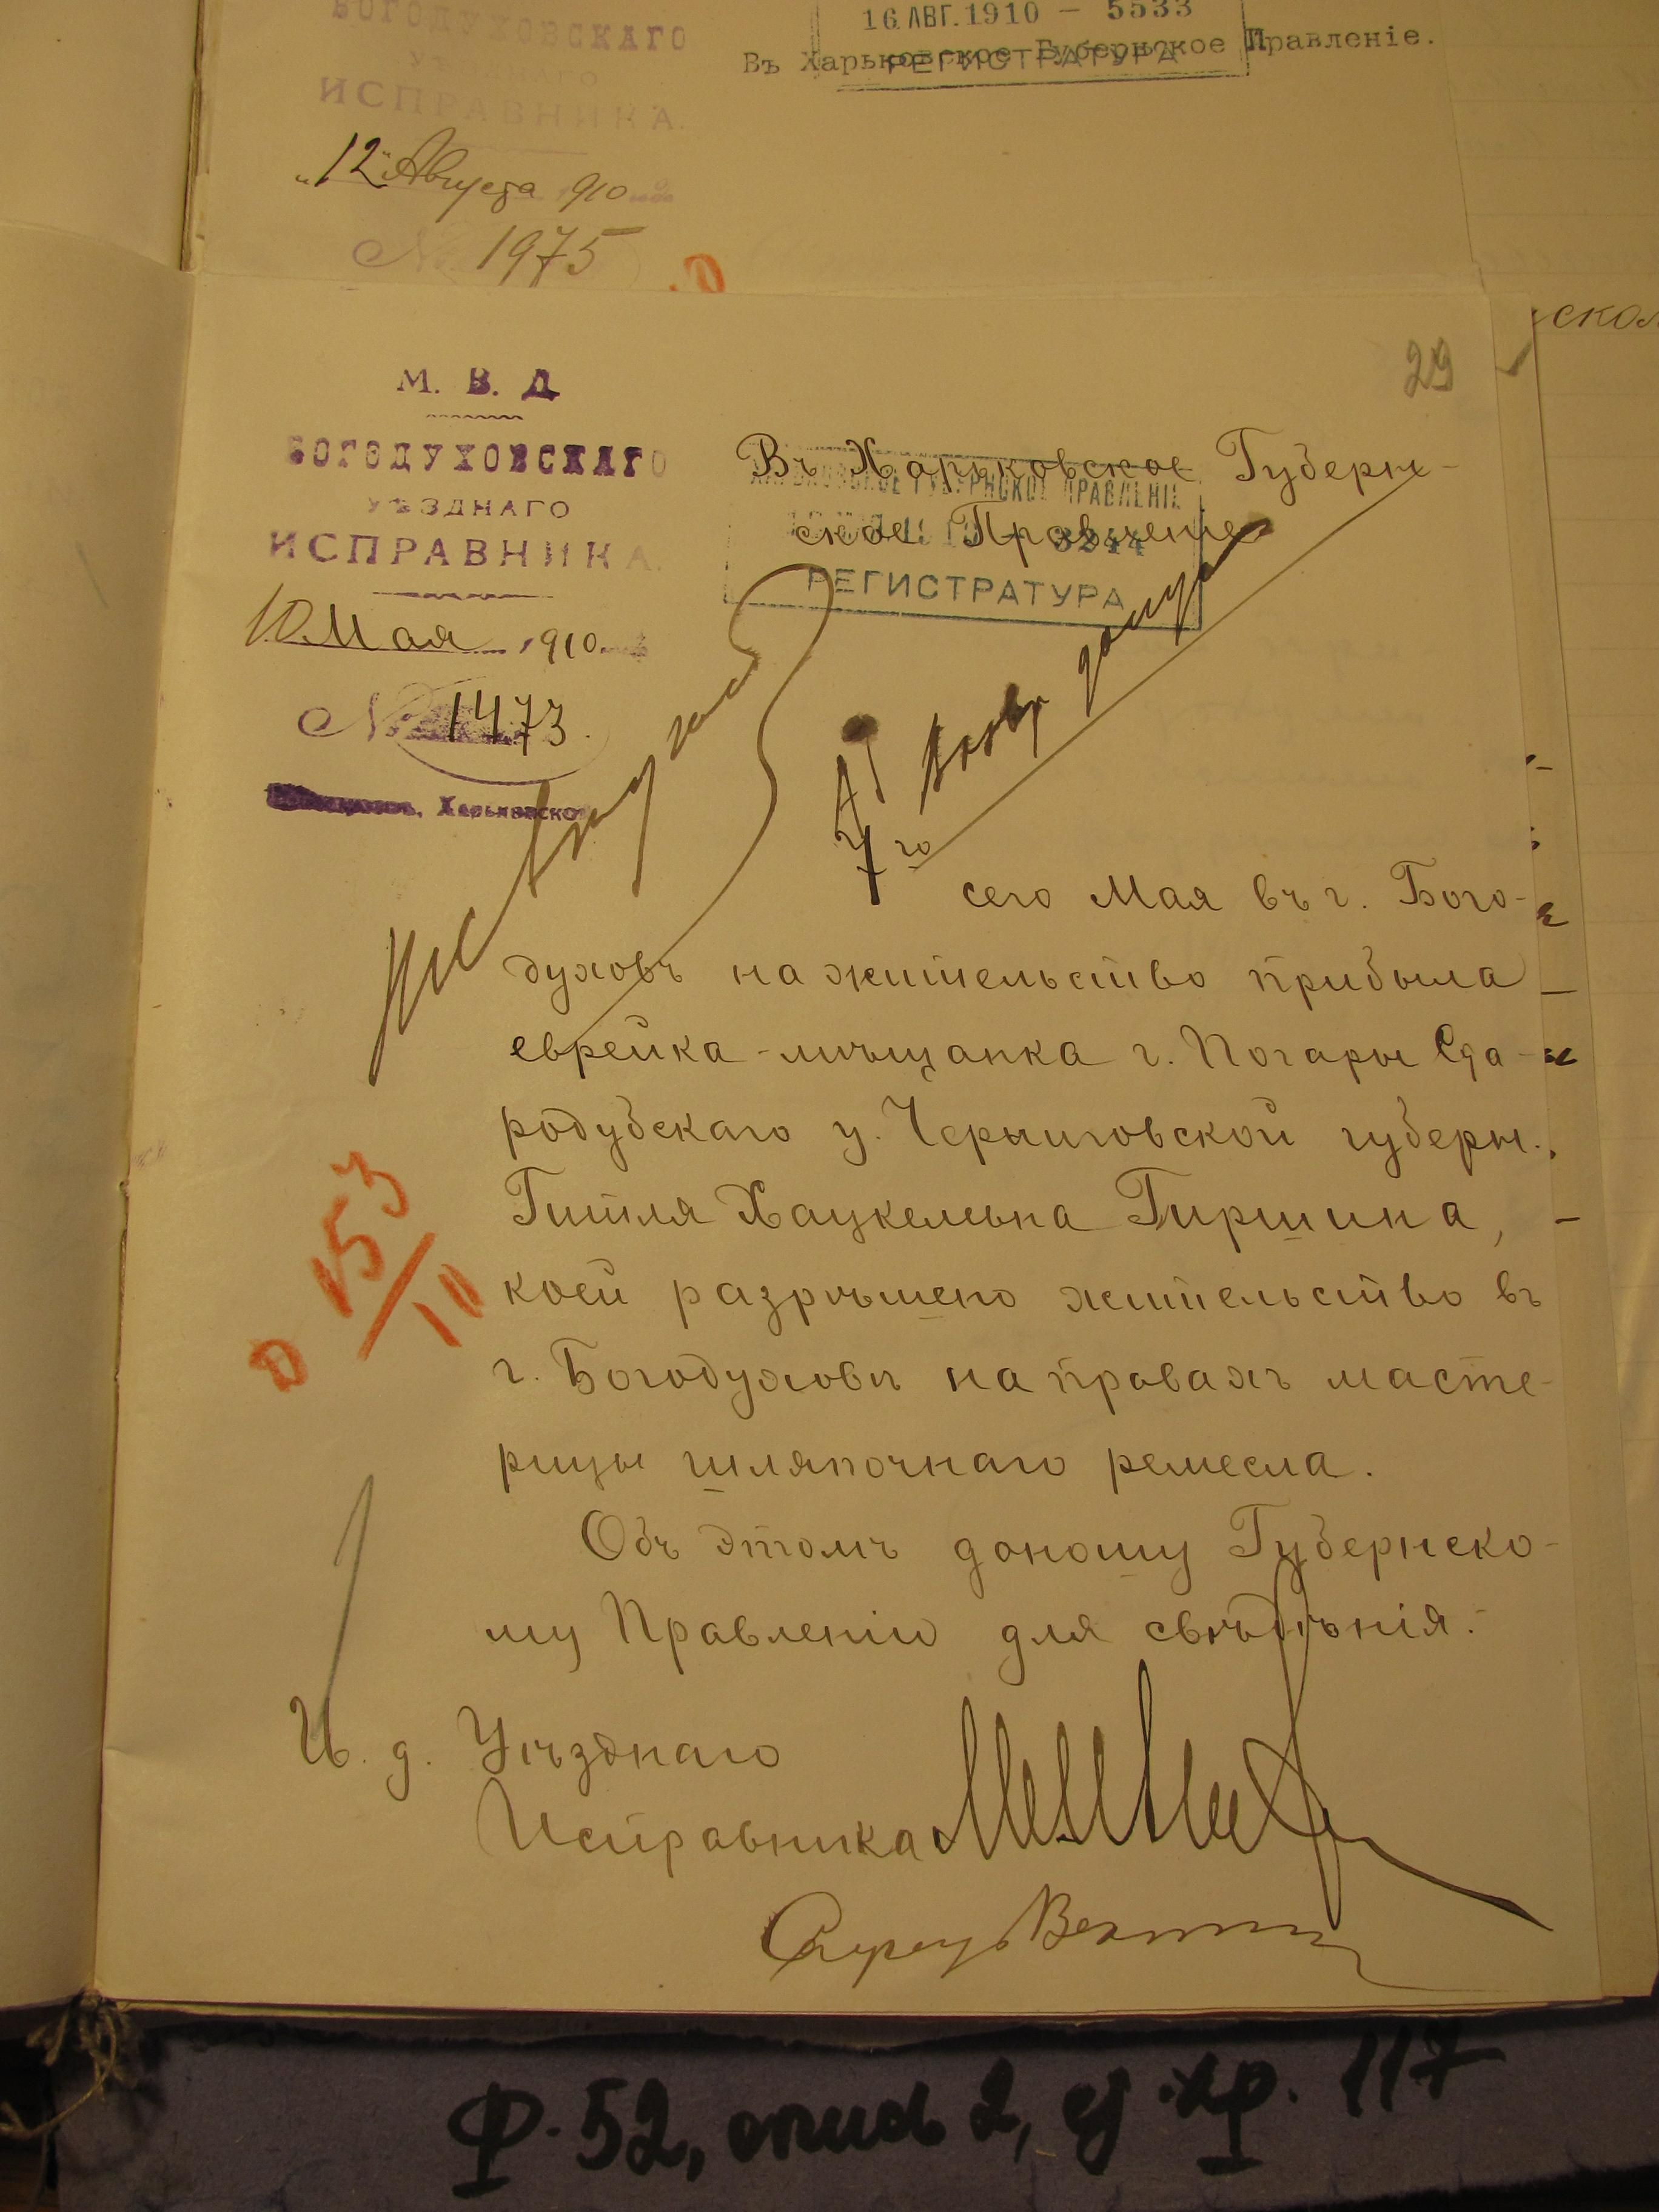 БОГОДУХОВСКАГО
УѢЗДНАГО
ИСПРАВНИКА.
"12" Августа 1910
№ 1975
16 АВГ. 1910 — 5533
Въ Харьковское Губернское Правленіе.
РЕГИСТРАТУРА
29
М. В. Д
БОГОДУХОВСКАГО
УѢЗДНАГО
ИСПРАВНИКА.
10 Мая 1910
№ 1473.
Харьковско
Въ Харьковское Губерн-
ское Правленіе
ХАРЬКОВСКОЕ ГУБЕРНСКОЕ ПРАВЛЕНІЕ
3244
РЕГИСТРАТУРА
7го сего Мая въ г. Бого-
духовъ на жительство прибыла
еврейка-мѣщанка г. Погары Ста-
родубскаго у. Черниговской губерн.
Гитля Хацкелевна Гиршина,
коей разрѣшено жительство въ
г. Богодуховѣ на правахъ масте-
рицы шляпочнаго ремесла.
Объ этомъ доношу Губернско-
му Правленію для свѣдѣнія.
И. д. Уѣзднаго
Исправника
D 153/10
Ф. 52, опись 2, ед. хр. 117